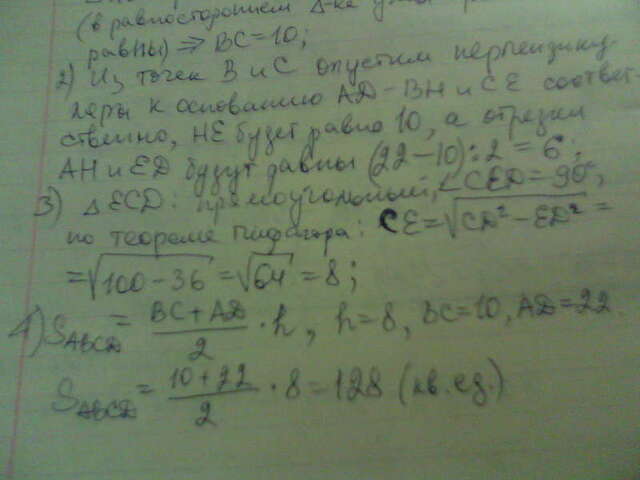 (в равностороннем Δ-ке углы
равны) ⇒ BC=10;
2) Из точек B и C опустим перпендику-
ляры к основанию AD - BH и CE соответ-
ственно, HE будет равно 10, а отрезки
AH и ED будут равны (22-10):2=6;
3) ΔECD: прямоугольный, ∠CED=90°,
по теореме Пифагора: CE=√CD²-ED²=
=√100-36=√64=8;
4) S ABCD = BC+AD/2 · h, h=8, BC=10, AD=22.
S ABCD = 10+22/2 · 8=128 (кв.ед.)